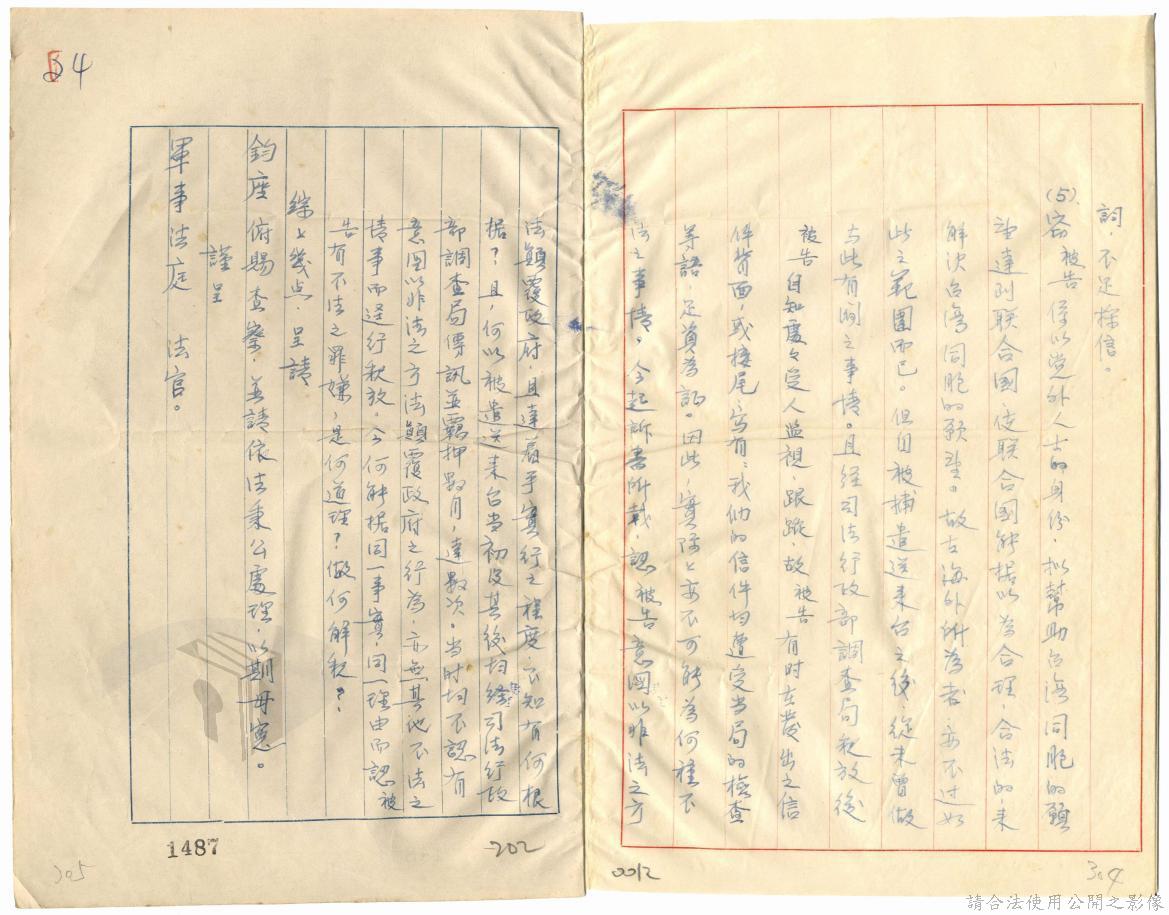 詞，不足採信。
(5)、被告僅以党外人士的身份，拟幫助台湾同胞的願
望達到联合國，使联合國能据以為合理，合法的，来
解决台湾同胞的願望。故古海外所為者，亦不过如
此之範圍而已。但自被捕遣送来台之後，從未曾做
与此有関之事情。且经司法行政部調查局釈放後
被告自知處々受人监視，跟蹤，故被告有时在發出之信
件背面，或接尾，寫有：我们的信件均遭受当局的檢查
等語，足資為証。因此，實际上亦不可能為何種不
法之事情。今起訴書所載，認被告意图以非法之方
法顛覆政府，且達着手實行之程度，不知有何根
据？且，何以被遣送来台当初及其後均经司法行政
部調查局傳訊並覊押數月，達數次。当时均不認有
意图以非法之方法顛覆政府之行為，亦無其他不法之
情事而逕行釈放。今何能据同一事實，同一理由而認被
告有不法之罪嫌，是何道理？做何解釈？
綜上幾点，呈請
鈞座俯賜查察，並請依法秉公處理，以期毋寃。
謹呈
軍事法庭 法官。
34
1487
202
205
0012
304
請合法使用公開之影像